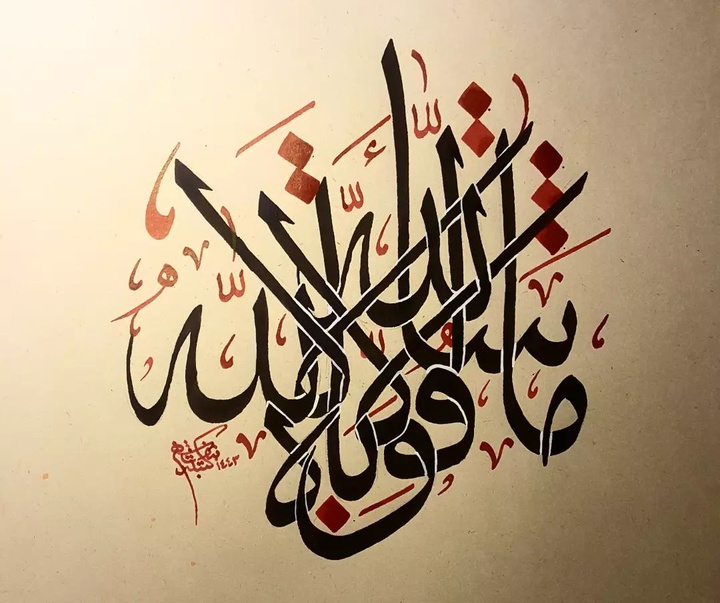 ما شاء الله لا قوة إلا بالله
١٤٤٣